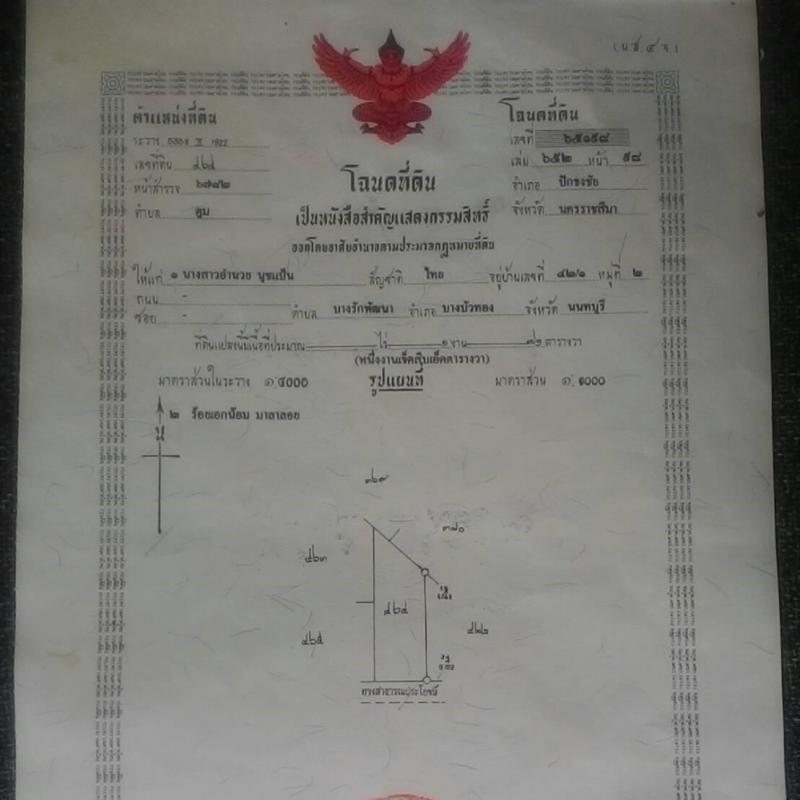 (น.ส.๔ จ)
ตำแหน่งที่ดิน
ระวาง
เลขที่ดิน ๔๖๔
หน้าสำรวจ ๖๗๔๒
ตำบล ตูม
โฉนดที่ดิน
เลขที่ ๖๕๑๕๘
เล่ม ๖๕๒ หน้า ๕๘
อำเภอ ปักธงชัย
จังหวัด นครราชสีมา
โฉนดที่ดิน
เป็นหนังสือสำคัญแสดงกรรมสิทธิ์
ออกโดยอาศัยอำนาจตามประมวลกฎหมายที่ดิน
ให้แก่ ๑ นางสาวอำนวย นุชแป้น สัญชาติ ไทย อยู่บ้านเลขที่ ๔๒/๑ หมู่ที่ ๒
ถนน -
ซอย - ตำบล บางรักพัฒนา อำเภอ บางบัวทอง จังหวัด นนทบุรี
ที่ดินแปลงนี้มีเนื้อที่ประมาณ - ไร่ ๑ งาน ๗๑ ตารางวา
(หนึ่งงานเจ็ดสิบเอ็ดตารางวา)
มาตราส่วนในระวาง ๑:๔๐๐๐ รูปแผนที่ มาตราส่วน ๑:๑๐๐๐
๒ ร้อยเอกน้อม มาลาลอย
น
๓๖๙
๓๗๐
๔๖๓
๔๖๔
๔๖๕
๔๒๒
ทางสาธารณประโยชน์